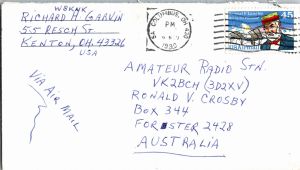 W8KNK
RICHARD M GARVIN
55 RESCH ST
KENTON, OH. 43326
USA
COLUMBUS, OH
PM
1990
45
VIA AIR MAIL
AMATEUR RADIO STN.
VK2BCH (3D2XV)
RONALD V. CROSBY
BOX 344
FORSTER 2428
AUSTRALIA